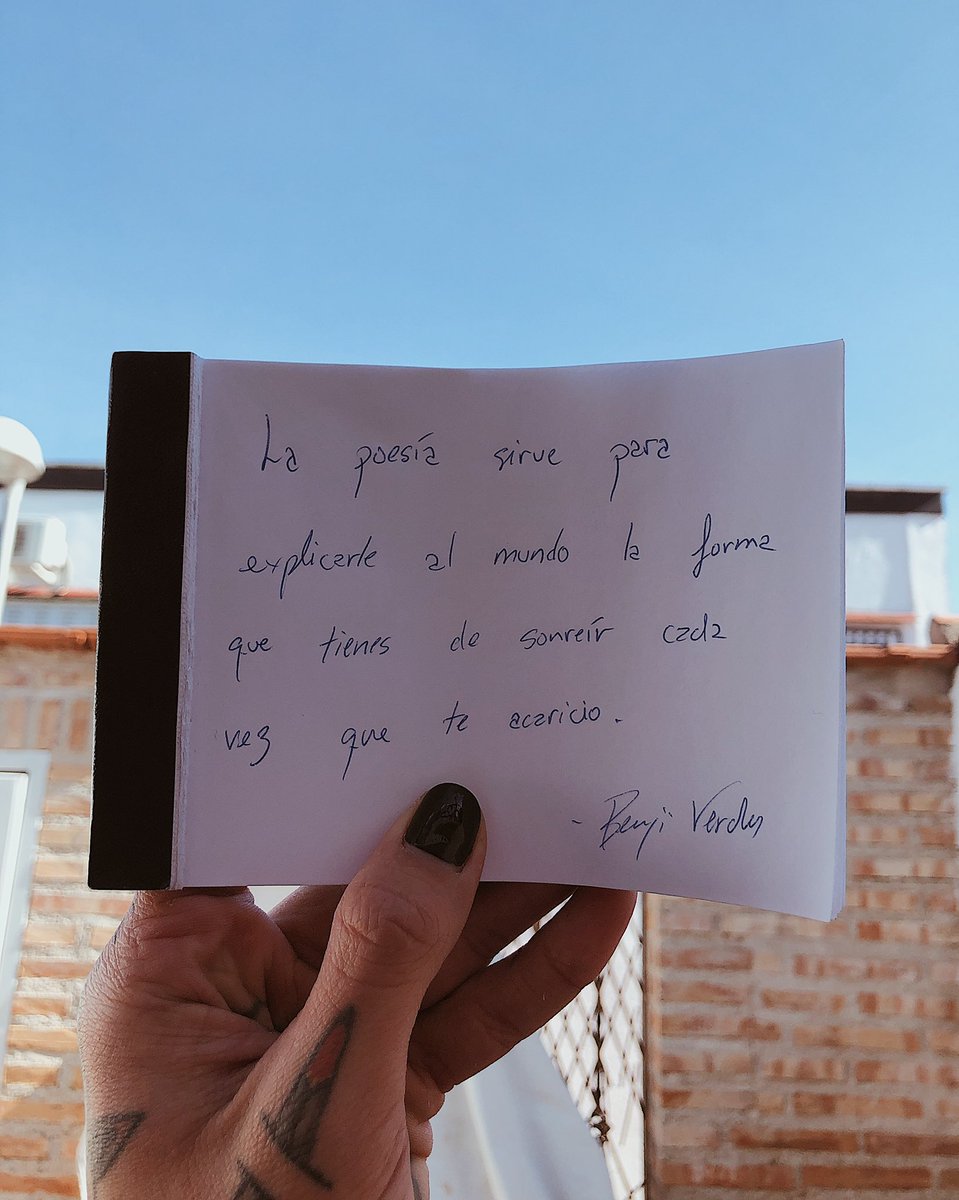 La poesía sirve para
explicarle al mundo la forma
que tienes de sonreír cada
vez que te acaricio.
- Benji Verdes